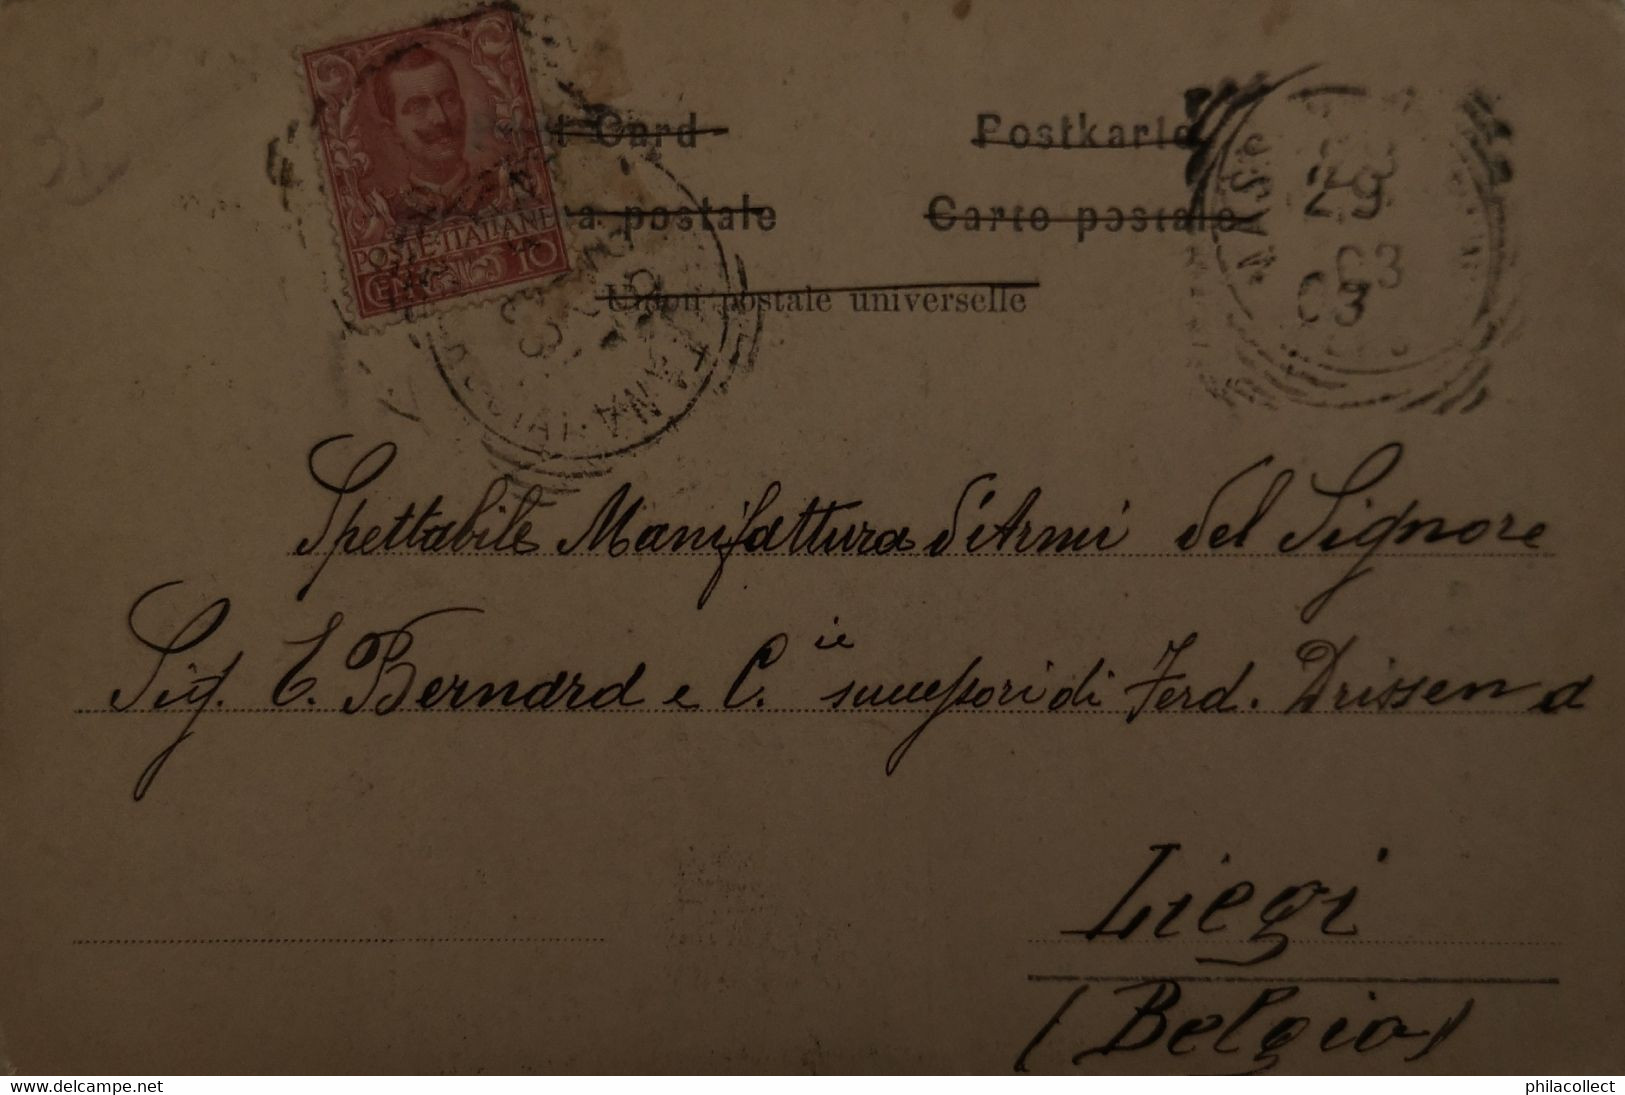 POSTE ITALIANE
CENT. 10
Card
Postkarte
postale
Carte postale
Union postale universelle
29
03
Spettabile Manifattura d'Armi del Signore
Sig. E. Bernard e C.ie successori di Ferd. Drissen a
Liegi
(Belgio)
www.delcampe.net
philacollect